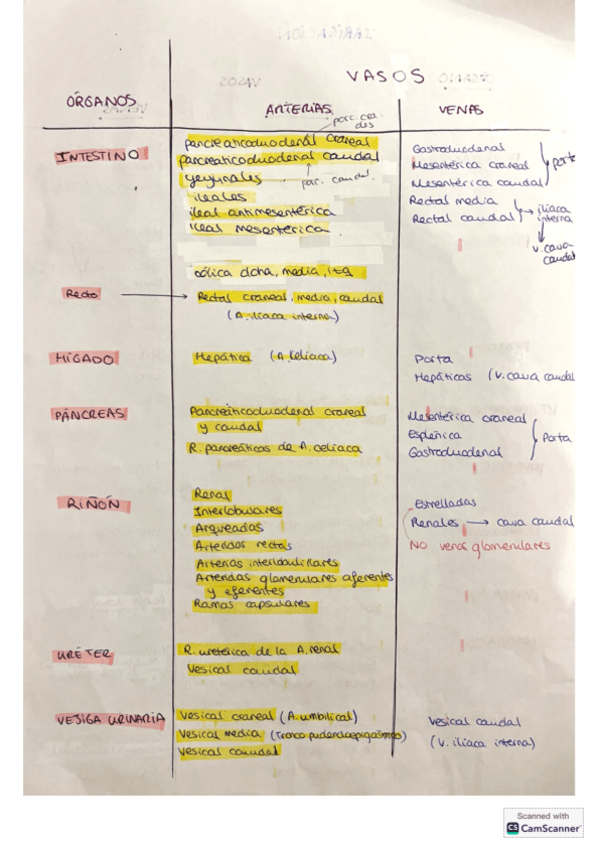 VASOS
ÓRGANOS
ARTERIAS
VENAS
INTESTINO
pancreaticoduodenal craneal
pancreaticoduodenal caudal
par. caudal.
yeyunales
ileales
ileal antimesentérica
ileal mesentérica
cólica dcha, media, izq
Gastroduodenal
Mesentérica craneal
Mesentérica caudal
porta
Rectal media
Rectal caudal
iliaca
interna
v. cava
caudal
Recto
Rectal craneal, media, caudal
(A. ilcaca interna)
HÍGADO
Hepática (A. Celiaca)
Porta
Hepáticas (v. cava caudal
PÁNCREAS
Pancreaticoduodenal craneal
y caudal
R. pancreáticos de A. celiaca
Mesentérica craneal
Esplénica
Gastroduodenal
Porta
RIÑÓN
Renal
Interlobulares
Arqueadas
Arteriolas rectas
Arterias interlobulillares
Arteriolas glomerulares aferentes
y eferentes
Ramas capsulares
Estrelladas
Renales → cava caudal
NO venas glomerulares
URÉTER
R. uretérica de la A. renal
Vesical caudal
VEJIGA URINARIA
Vesical craneal (A. umbilical)
Vesical media (Tronco pudendoepigástrico)
Vesical caudal
Vesical caudal
(V. iliaca interna)
Scanned with
CS CamScanner